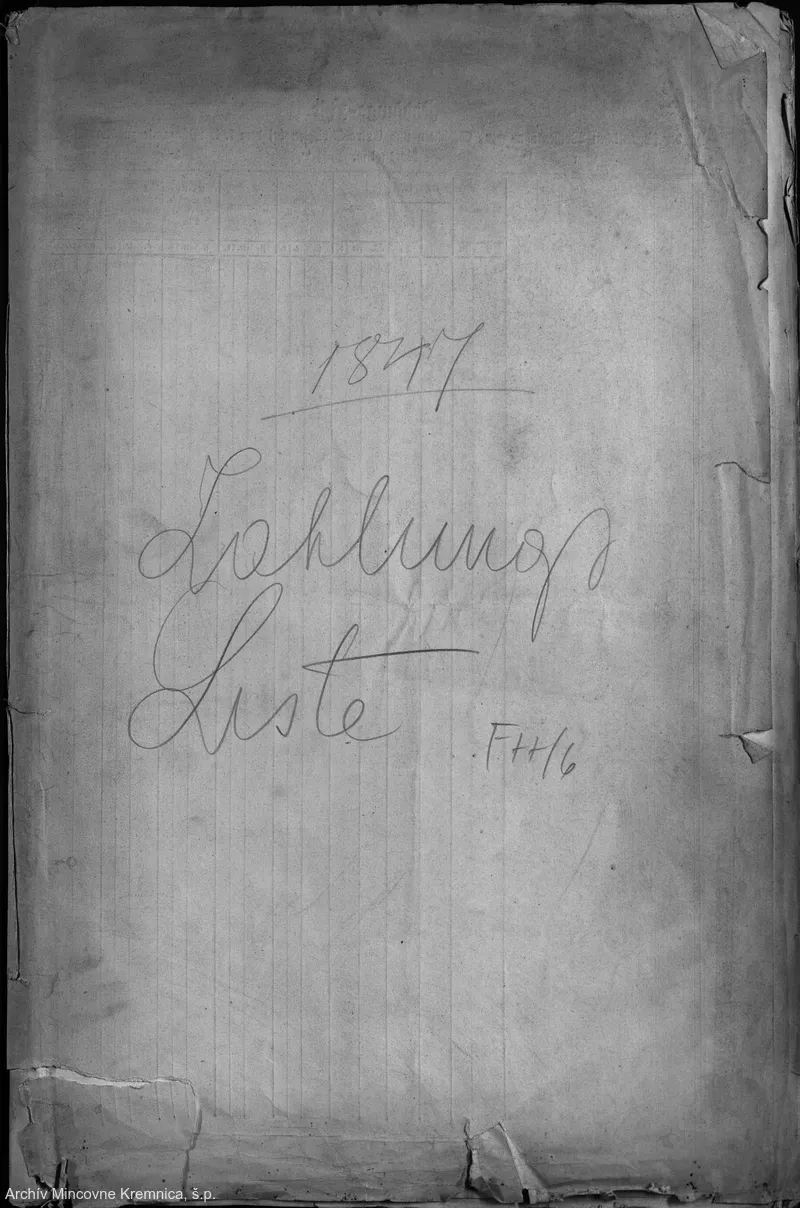 1847
Zahlungs
Liste
FH/6
Archív Mincovne Kremnica, š.p.